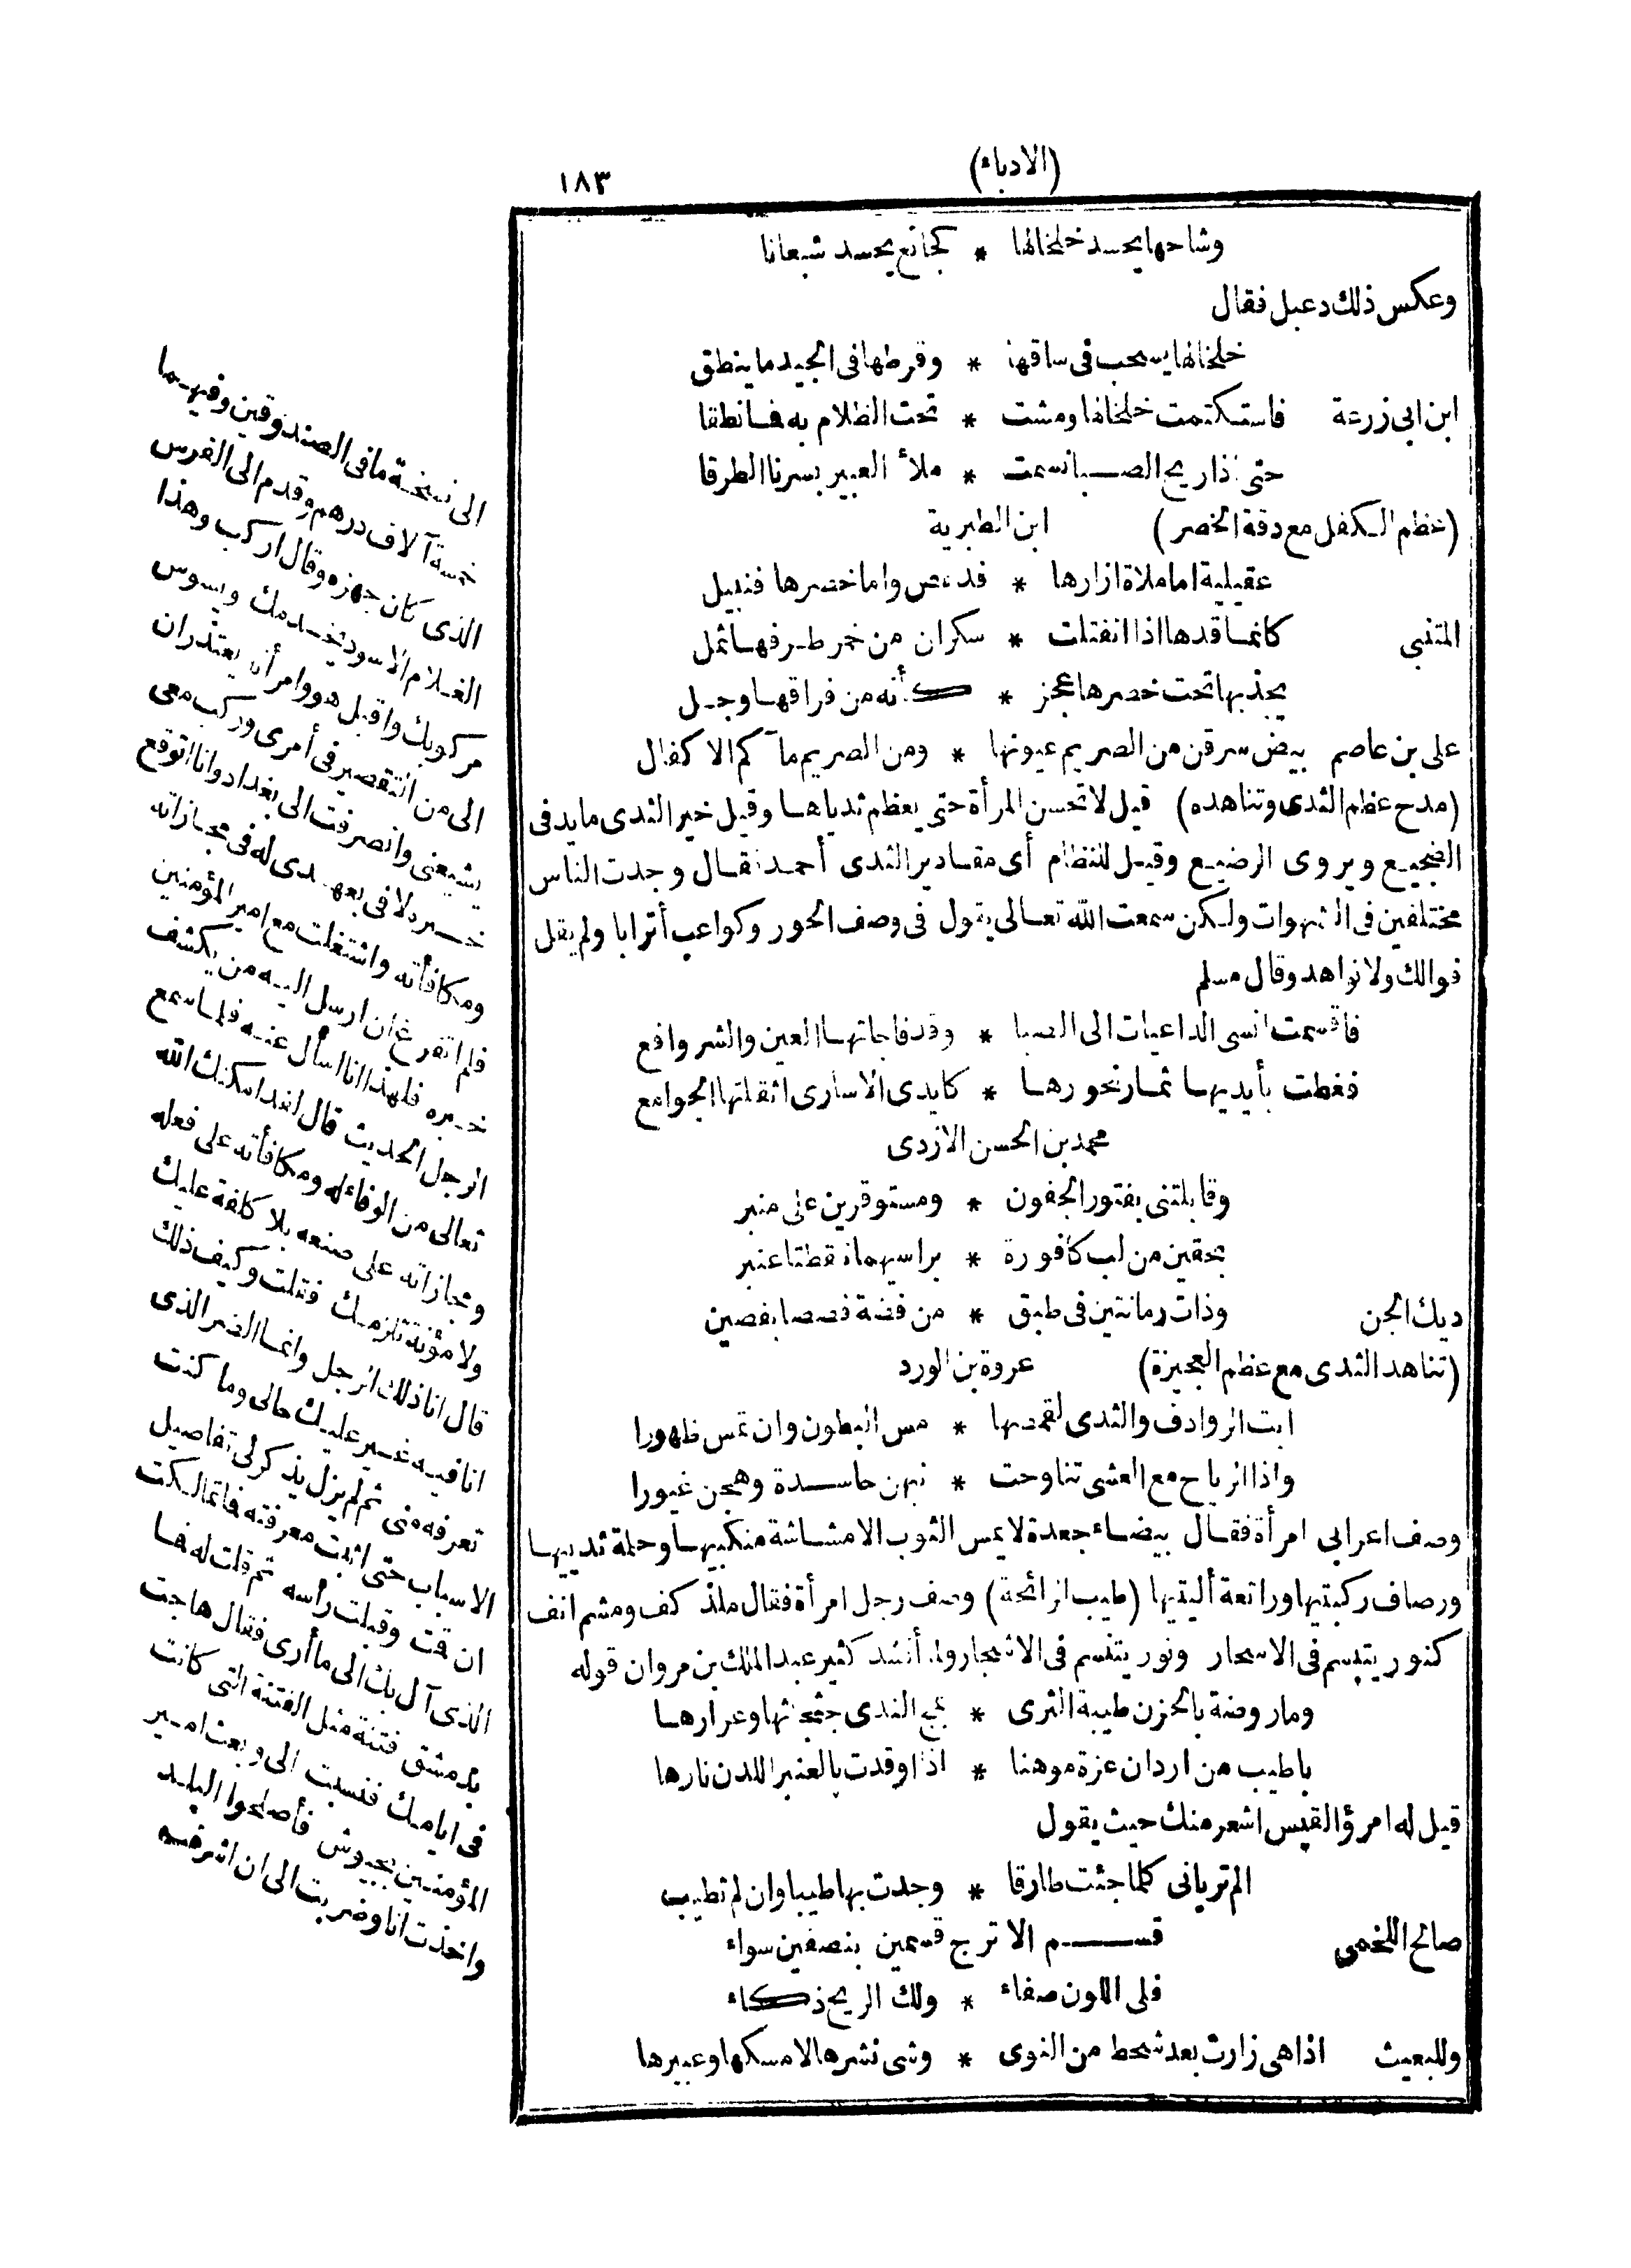 (الادباء)
١٨٣
وشاحها يحسد خلخالها * كجائع يحسد شبعانا
وعكس ذلك دعبل فقال
خلخالها يسحب فى ساقها * وقرطها فى الجيد ما ينطق
ابن ابى زرعة فاستكتمت خلخالها ومشت * تحت الظلام به فما نطقا
حتى اذا ريح الصبا نسمت * ملأ العبير بسرنا الطرقا
(عظم الكفل مع دقة الخصر) ابن الطبرية
عقيلية اما ملاة ازارها * فدعص واما خصرها فنبيل
المتنبى كانما قدها اذا انفتلت * سكران من خمر طرفها ثمل
يجذبها تحت خصرها عجز * كأنه من فراقها وجل
على بن عاصم بيض سرقن من الصريم عيونها * ومن الصريم مآكم الاكفال
(مدح عظم الثدى وتناهده) قيل لا تحسن المرأة حتى يعظم ثدياها وقيل خير الثدى ما يدفى
الضجيع ويروى الرضيع وقيل للنظام أى مقادير الثدى أحمد فقال وجدت الناس
مختلفين فى الشهوات ولكن سمعت الله تعالى يقول فى وصف الحور وكواعب أترابا ولم يقل
فوالك ولا نواهد وقال مسلم
فاقسمت انسى الداعيات الى الصبا * وقد فاجاتها العين والستر واقع
فغطت بأيديها ثمار نحورها * كايدى الاسارى اثقلتها الجوامع
محمد بن الحسن الازدى
وقابلتنى بفتور الجفون * ومستوقرين على منبر
بحقين من لب كافورة * براسيهما نقطتا عنبر
ديك الجن وذات رمانتين فى طبق * من فضة فصصا بفصين
(تناهد الثدى مع عظم العجيزة) عروة بن الورد
ابت الروادف والثدى لقمصها * مس البطون وان تمس ظهورا
واذا الرياح مع العشى تناوحت * نبهن حاسدة وهجن غيورا
وصف اعرابى امرأة فقال بيضاء جعدة لا يمس الثوب الا مشاشة منكبيها وحلمة ثدييها
ورصاف ركبتيها ورانعة أليتيها (طيب الرائحة) وصف رجل امرأة فقال ملذ كف ومشم انف
كنور يتبسم فى الاسحار ونور يتنسم فى الاشجار ولما أنشد كثير عبد الملك بن مروان قوله
وما روضة بالحزن طيبة الثرى * يمج الندى جثجاثها وعرارها
باطيب من اردان عزة موهنا * اذا اوقدت بالعنبر اللدن نارها
قيل له امرؤ القيس اشعر منك حيث يقول
الم تريانى كلما جئت طارقا * وجدت بها طيبا وان لم تطيب
صالح اللخمى قسم الاترج قسمين بنصفين سواء
فلى اللون صفاء * ولك الريح ذكاء
وللبعيث اذا هى زارت بعد شحط من النوى * وشى نشرها الا مسكها وعبيرها
الى نسخة ما فى الصندوقين وفيهما
خمسة آلاف درهم وقدم الى الفرس
الذى كان جهزه وقال اركب وهذا
الغلام الاسود يخدمك ويسوس
مركوبك واقبل هو وامرأته يعتذران
الى من التقصير فى أمرى وركب معى
يشيعنى وانصرفت الى بغداد وانا اتوقع
خبره لا فى بعهدى له فى مجازاته
ومكافأته واشتغلت مع امير المؤمنين
فلم اتفرغ ان ارسل اليه من يكشف
خبره فلهذا انا اسأل عنه فلما سمع
الرجل الحديث قال لقد امكنك الله
تعالى من الوفاء له ومكافأته على فعله
ومجازاته على صنعه بلا كلفة عليك
ولا مؤنة تلزمك فقلت وكيف ذلك
قال انا ذلك الرجل وانما الضر الذى
انا فيه غير عليك حالى وما كنت
تعرفه منى ثم لم يزل يذكر لى تفاصيل
الاسباب حتى اثبت معرفته فما تمالكت
ان قمت وقبلت رأسه ثم قلت له فما
الذى آل بك الى ما أرى فقال هاجت
بدمشق فتنة مثل الفتنة التى كانت
فى ايامك فنسبت الى وبعث امير
المؤمنين بجيوش فأصلحوا البلد
واخذت انا وضربت الى ان اشرفت